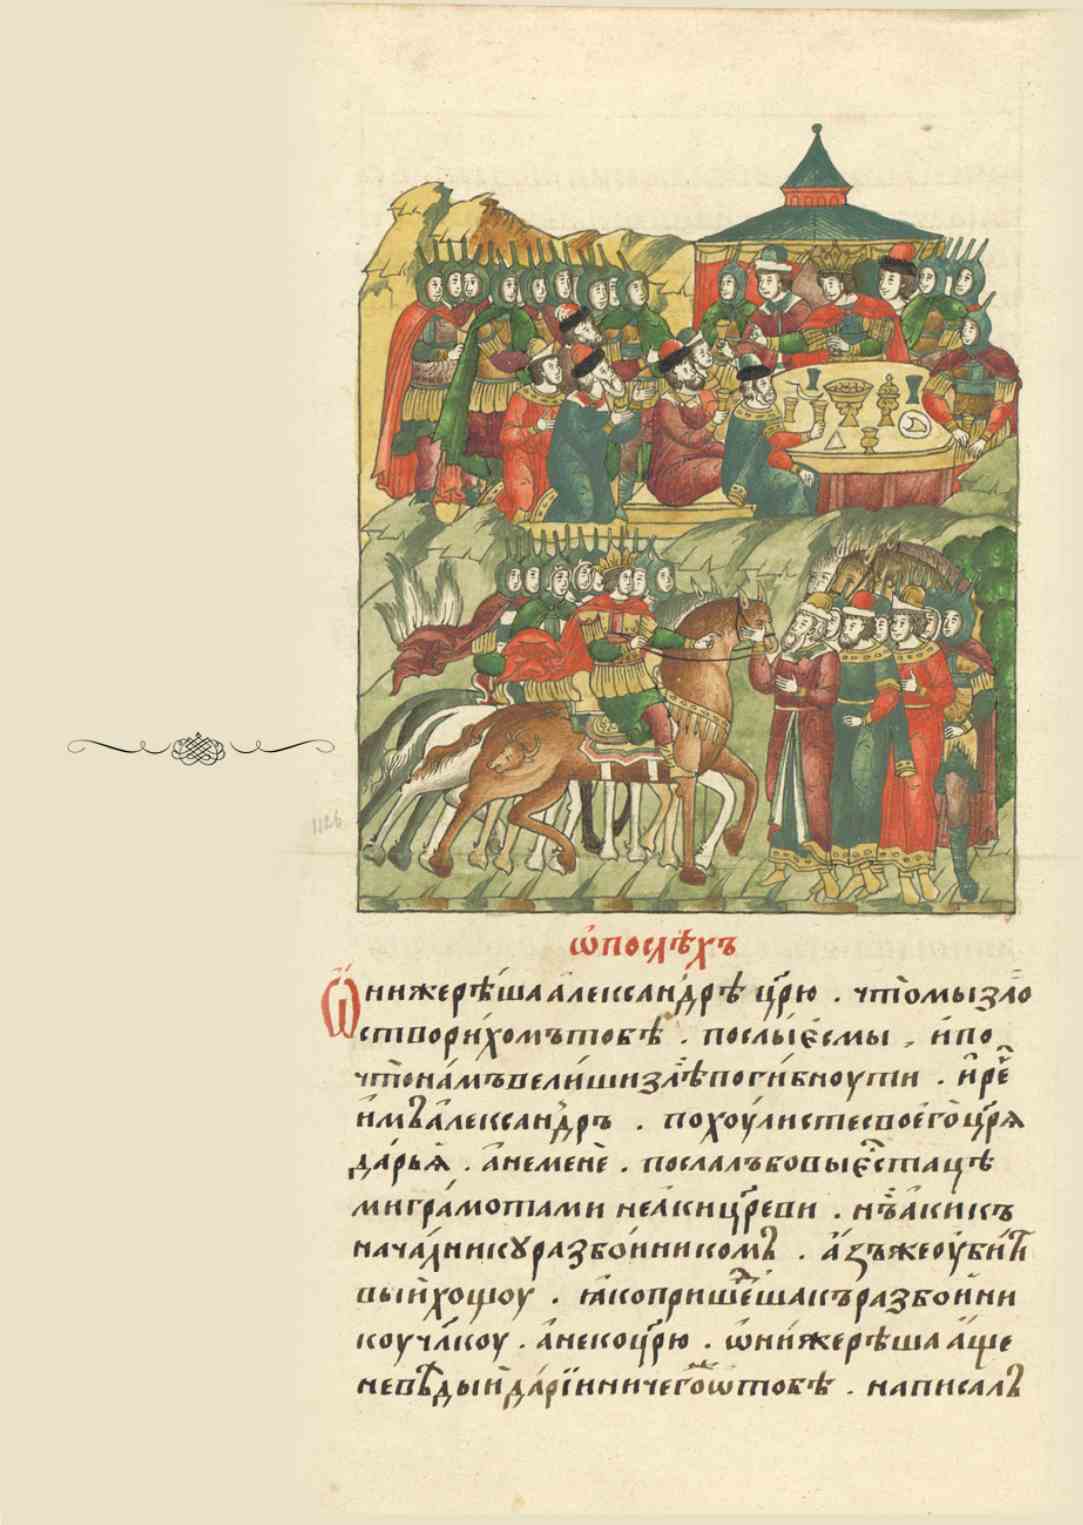 ѡ҆послѣхъ
Ѡ҆нижерѣ́шаа҆леѯан́дрѣ цр҃ю . чтѡ̀мызло
створи́хомътобѣ . послы̀є҆смы , и҆по
чтѡ̀на́мъвели́шизлѣ̀поги́бноути . и҆рⷱ҇е
и҆мъа҆леѯан́дръ . похоу́листесвоего̀цр҃ѧ
да́рьѧ . а҆неменѐ . послалъбовыє҆́стацѣ
мигра́мотами неа҆кицр҃еви . нѣ́а҆кикъ
нача́лникꙋразбо́иникомъ . а҆́зъжеоу҆би́ти
выи҆хощоу . ꙗ҆копришеⷣ́шакъразбо́ини
коучл҃коу . а҆некоцр҃ю . ѡ҆ни́жерѣша а҆́ще
невѣ́дыи҆да́рїинничего̀ѡ҆тобѣ . написалъ
1126